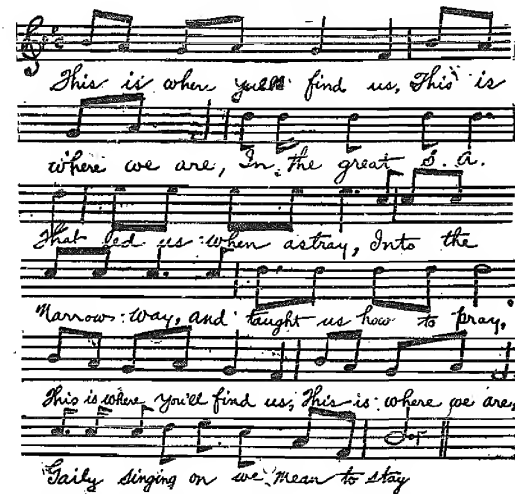 This is where you'll find us, This is
where we are, In the great S. A.
That led us when astray, Into the
Narrow way, and taught us how to pray,
This is where you'll find us, This is where we are,
Gaily singing on we mean to stay